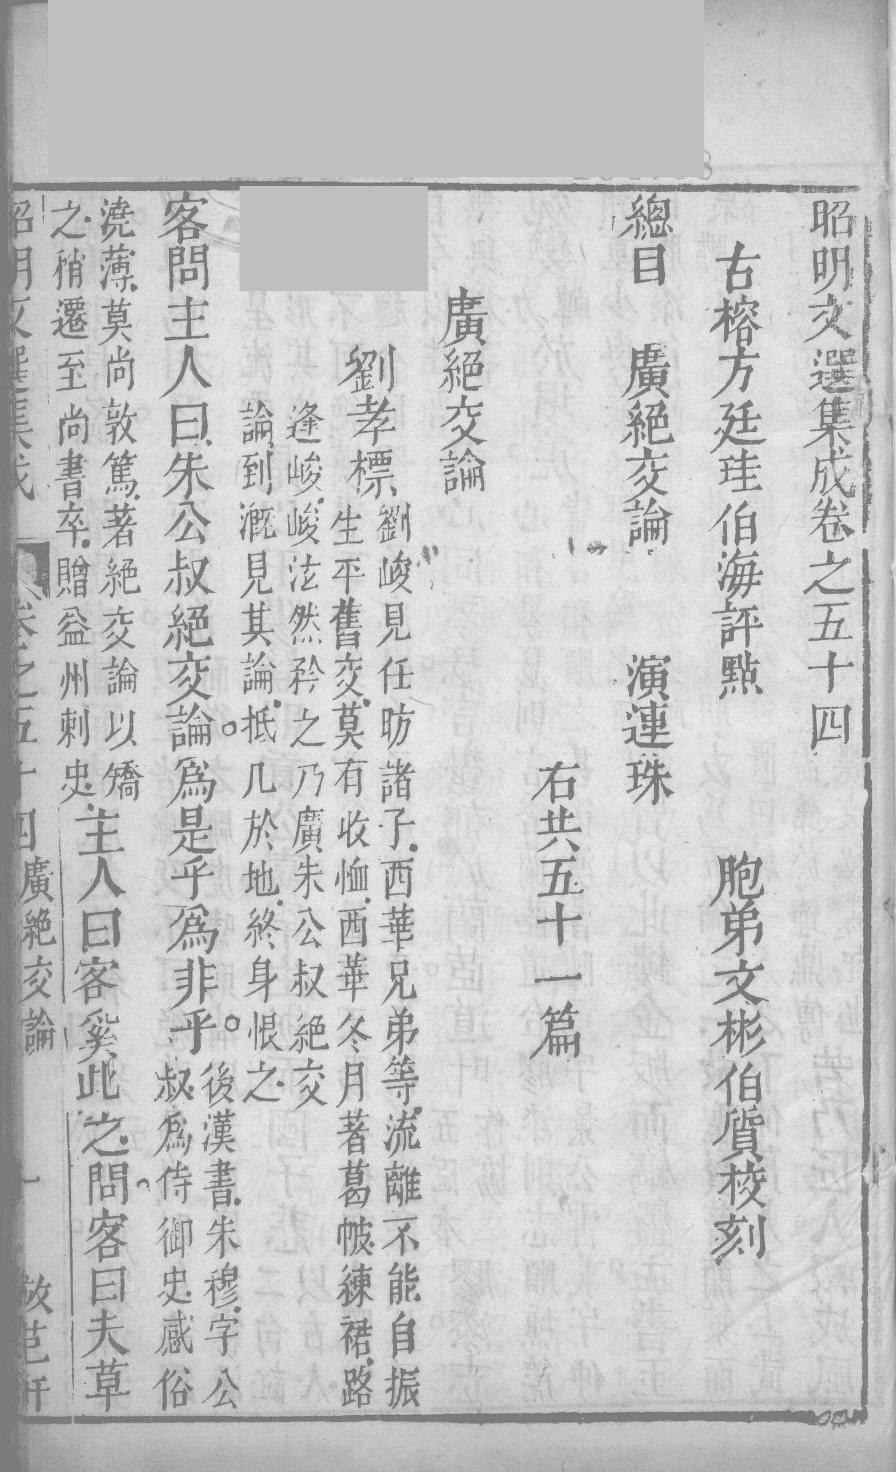 昭明文選集成卷之五十四
古榕方廷珪伯海評點　胞弟文彬伯質校刻
總目　廣絕交論　演連珠
右共五十一篇
廣絕交論
劉孝標
劉峻見任昉諸子西華兄弟等流離不能自振
生平舊交莫有收恤西華冬月著葛帔練裙路
逢峻峻泫然矜之乃廣朱公叔絕交
論到溉見其論抵几於地終身恨之
客問主人曰朱公叔絕交論爲是乎爲非乎
後漢書朱穆字公
叔爲侍御史感俗
澆薄莫尚敦篤著絕交論以矯
之稍遷至尚書卒贈益州刺史
主人曰客奚此之問客曰夫草
昭明文選集成　卷之五十四　廣絕交論　一